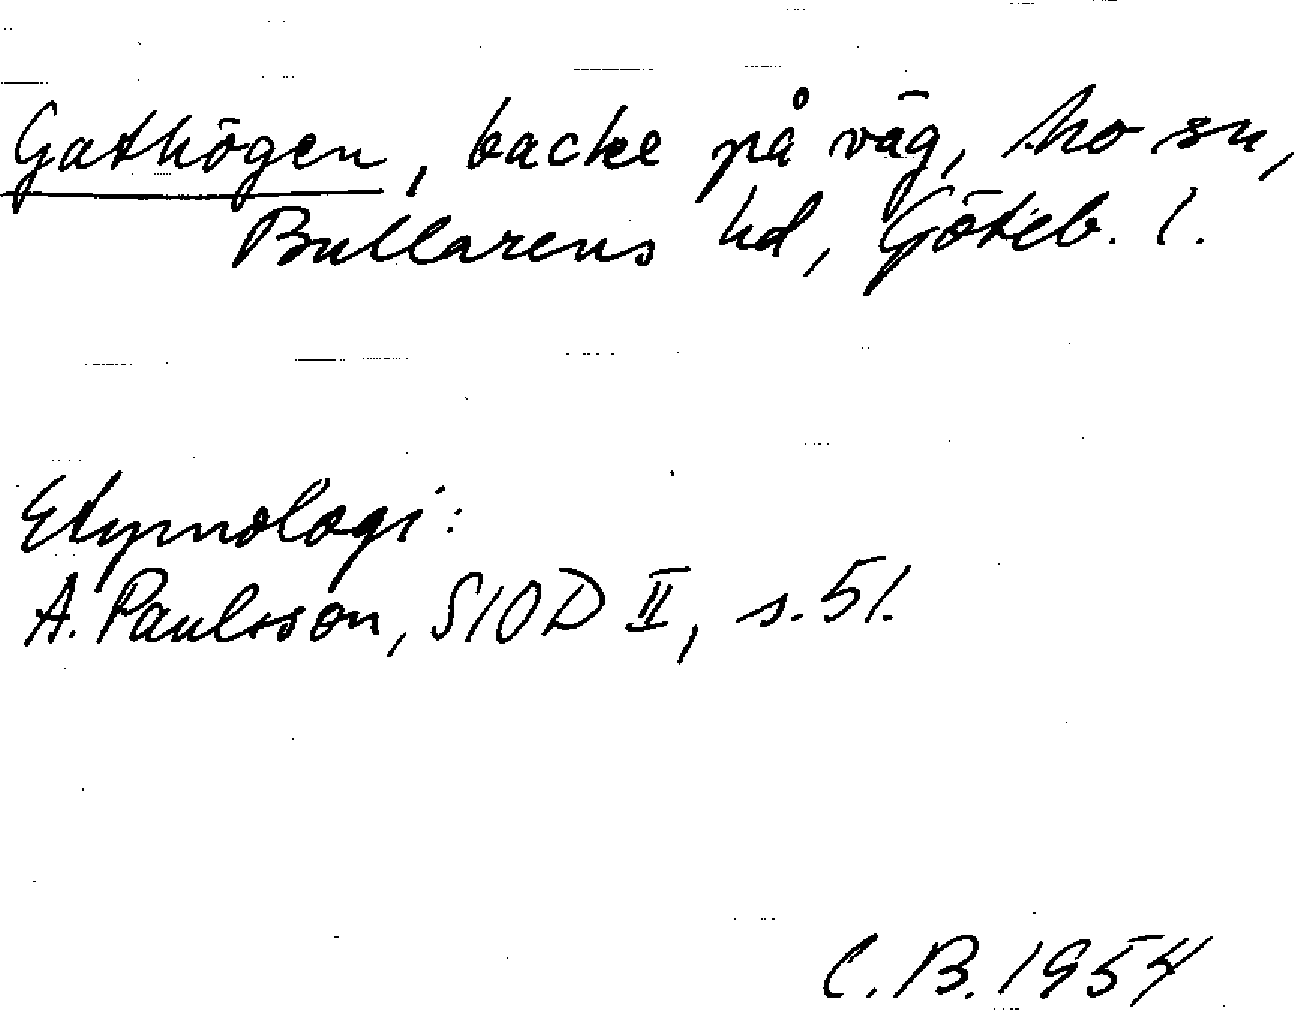 Gathögen, backe på väg, Mo sn,
Bullarens hd, Göteb. l.
Etymologi:
A. Paulsson, SIOD II, s. 51.
C. B. 1954